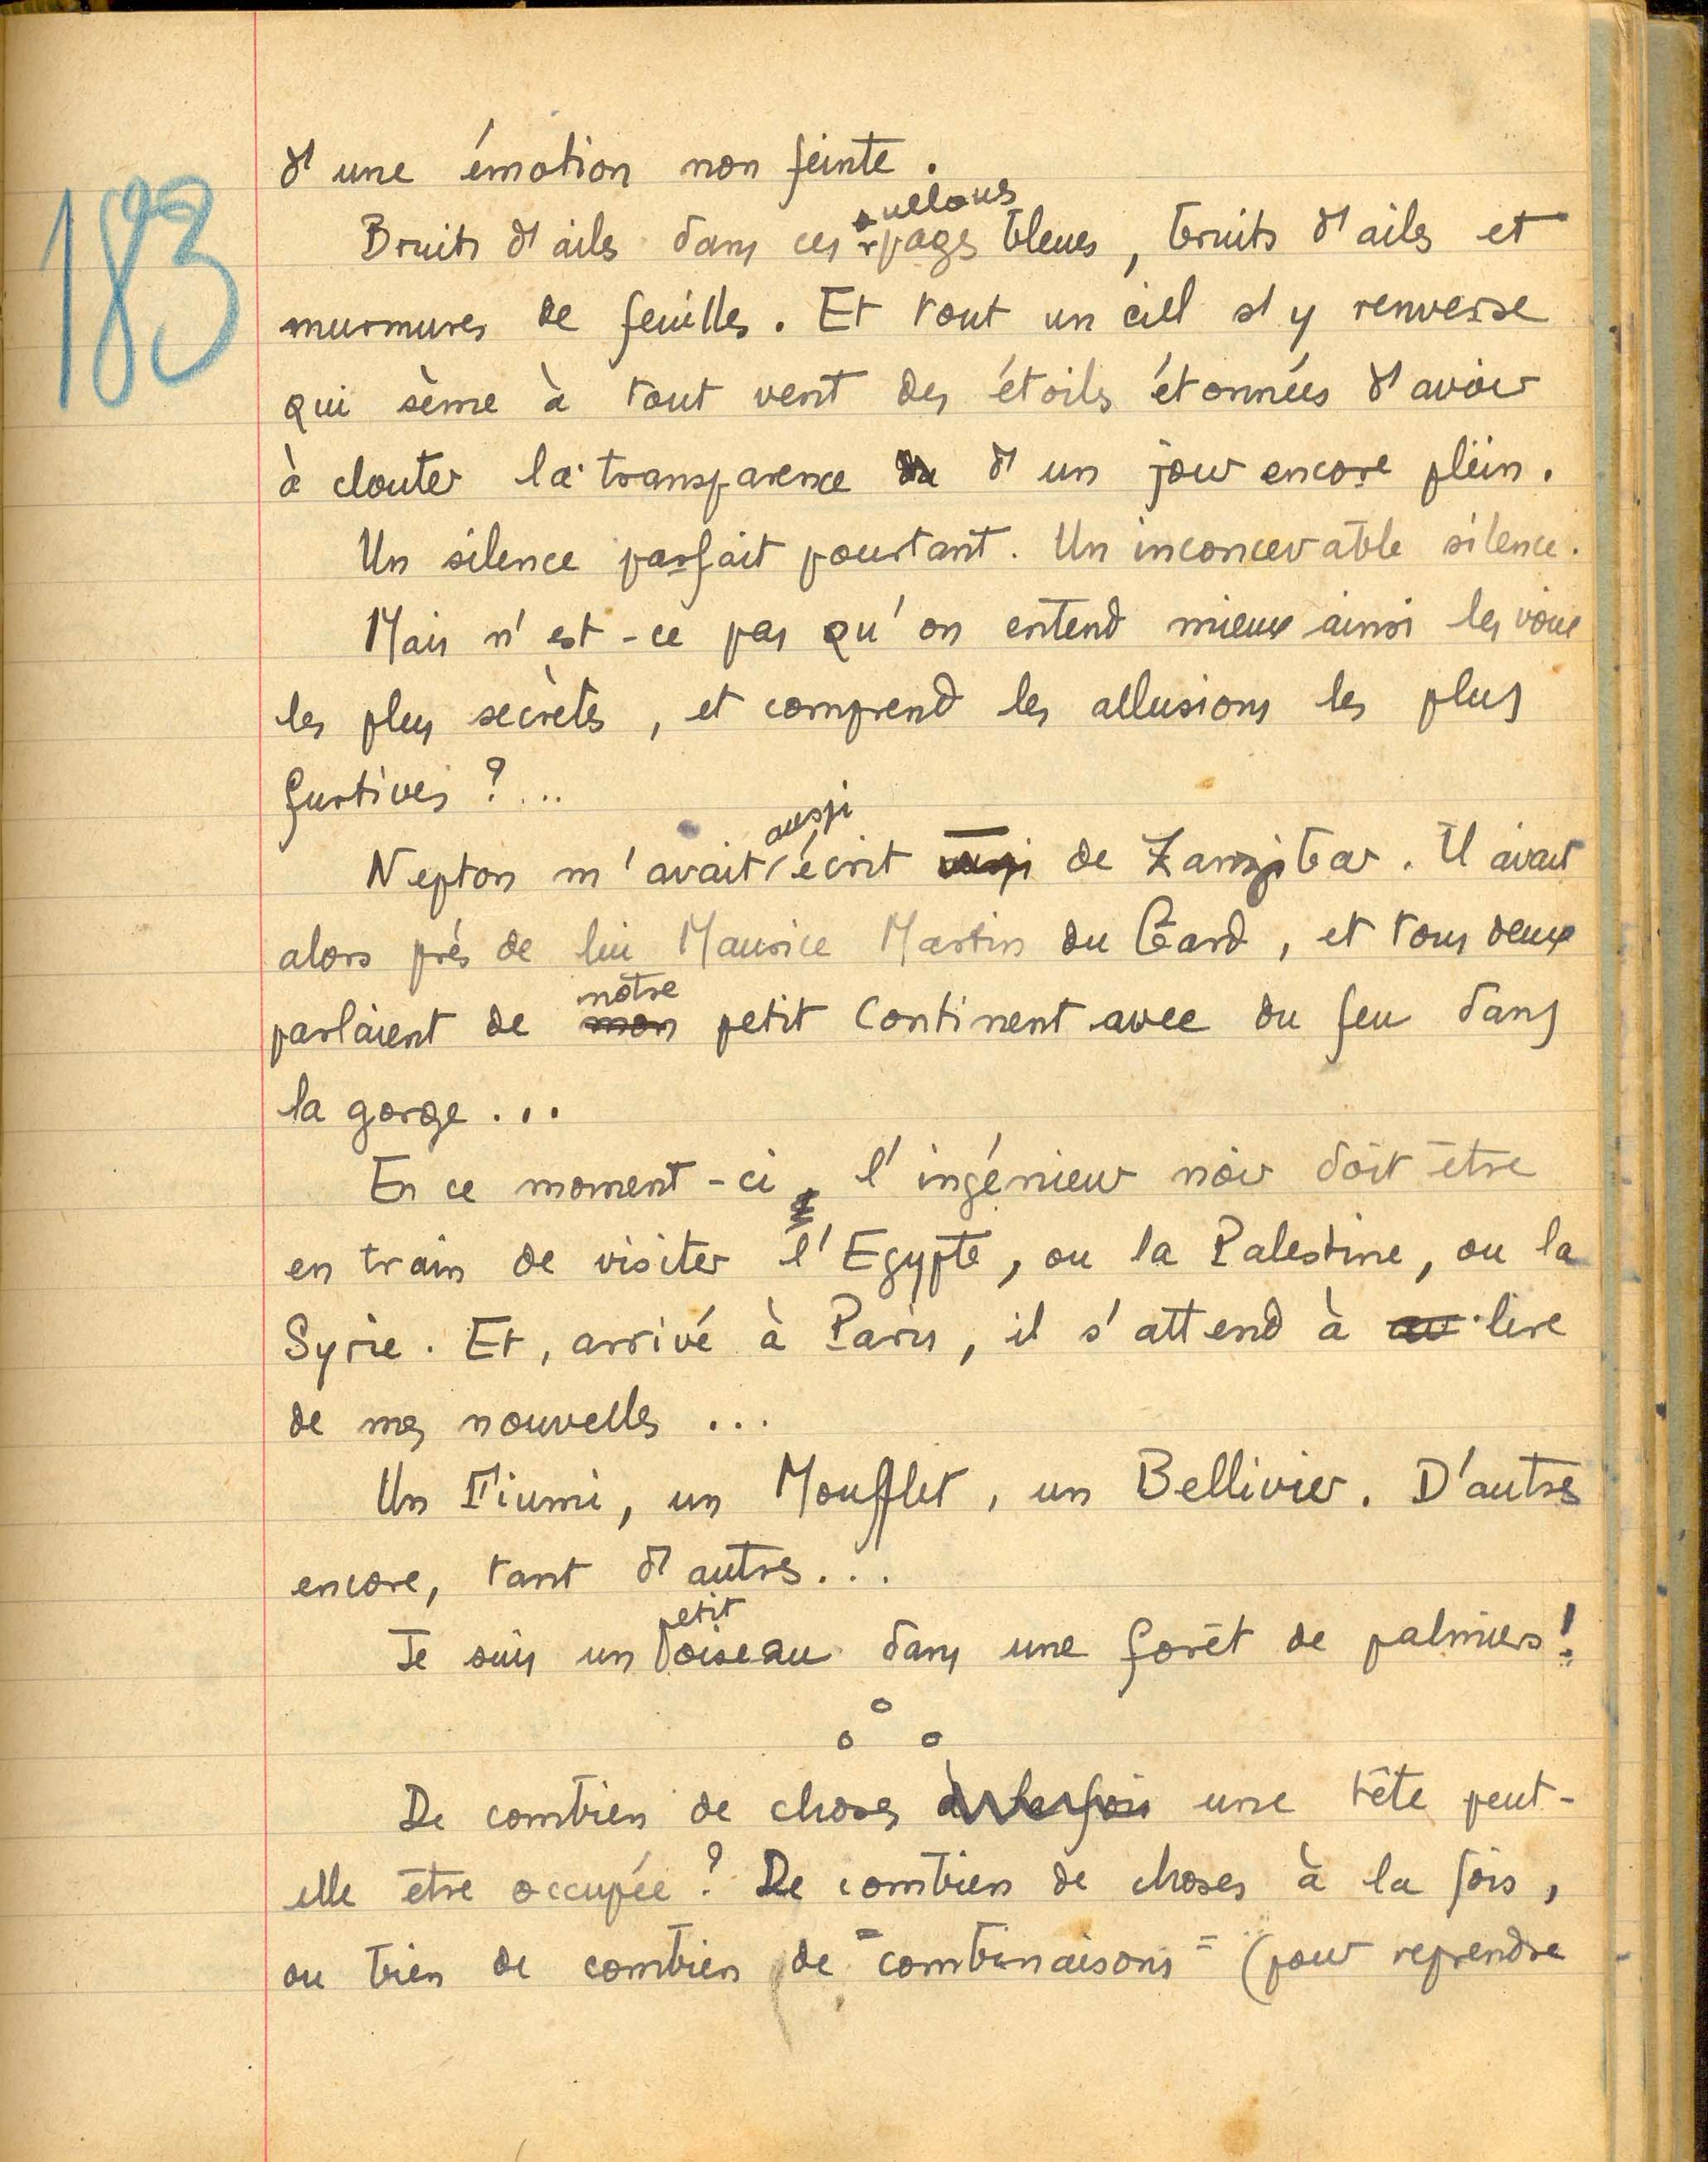 183
d'une émotion non feinte.
Bruits d'ailes dans ces pages bleues, bruits d'ailes et
murmures de feuilles. Et tout un ciel s'y renverse
qui sème à tout vent des étoiles étonnées d'avoir
à clouter la transparence d'un jour encore plein.
Un silence parfait pourtant. Un inconcevable silence.
Mais n'est-ce pas qu'on entend mieux ainsi les voix
les plus secrètes, et comprend les allusions les plus
furtives ?...
aussi
Nepton m'avait écrit aussi de Zanzibar. Il avait
alors près de lui Maurice Martin du Gard, et tous deux
notre
parlaient de mon petit continent avec du feu dans
la gorge...
En ce moment-ci, l'ingénieur noir doit être
en train de visiter l'Egypte, ou la Palestine, ou la
Syrie. Et, arrivé à Paris, il s'attend à lire
de mes nouvelles ...
Un Fiumi, un Moufflet, un Bellivier. D'autres
encore, tant d'autres...
petit
Je suis un oiseau dans une forêt de palmiers!
De combien de choses à la fois une tête peut-
elle être occupée ? De combien de choses à la fois,
ou bien de combien de "combinaisons" (pour reprendre